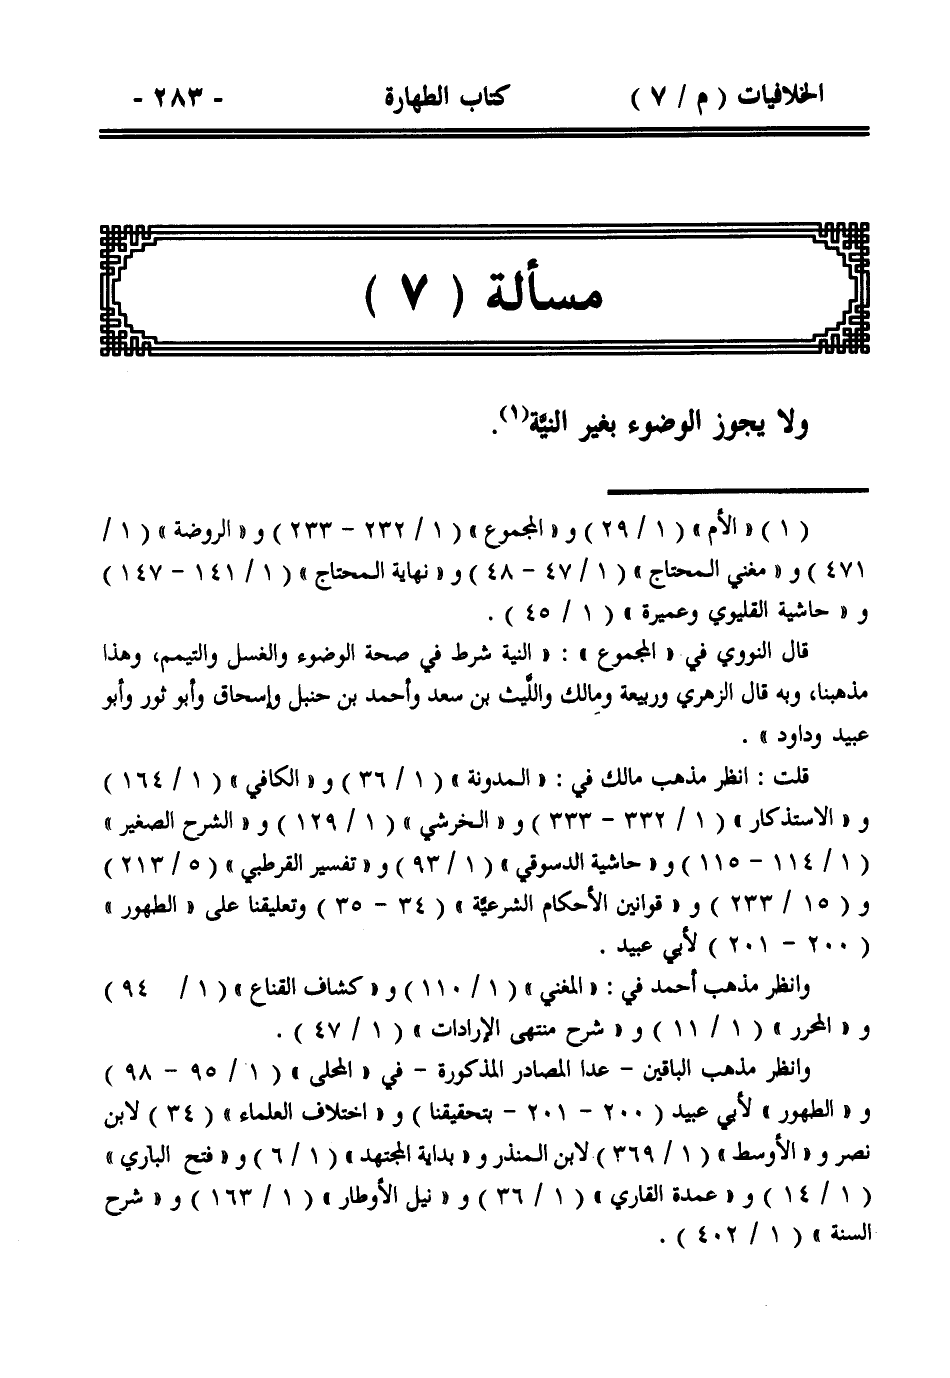 الخلافيات ( م / ٧ ) كتاب الطهارة - ٢٨٣ -
مسألة ( ٧ )
ولا يجوز الوضوء بغير النيَّة(١).
( ١ ) « الأم » ( ١ / ٢٩ ) و « المجموع » ( ١ / ٢٣٢ - ٢٣٣ ) و « الروضة » ( ١ /
٤٧١ ) و « مغني المحتاج » ( ١ / ٤٧ - ٤٨ ) و « نهاية المحتاج » ( ١ / ١٤١ - ١٤٧ )
و « حاشية القليوي وعميرة » ( ١ / ٤٥ ) .
قال النووي في « المجموع » : « النية شرط في صحة الوضوء والغسل والتيمم، وهذا
مذهبنا، وبه قال الزهري وربيعة ومالك واللَّيث بن سعد وأحمد بن حنبل وإسحاق وأبو ثور وأبو
عبيد وداود » .
قلت : انظر مذهب مالك في : « المدونة » ( ١ / ٣٦ ) و « الكافي » ( ١ / ١٦٤ )
و « الاستذكار » ( ١ / ٣٣٢ - ٣٣٣ ) و « الخرشي » ( ١ / ١٢٩ ) و « الشرح الصغير »
( ١ / ١١٤ - ١١٥ ) و « حاشية الدسوقي » ( ١ / ٩٣ ) و « تفسير القرطبي » ( ٥ / ٢١٣ )
و ( ١٥ / ٢٣٣ ) و « قوانين الأحكام الشرعيَّة » ( ٣٤ - ٣٥ ) وتعليقنا على « الطهور »
( ٢٠٠ - ٢٠١ ) لأبي عبيد .
وانظر مذهب أحمد في : « المغني » ( ١ / ١١٠ ) و « كشاف القناع » ( ١ / ٩٤ )
و « المحرر » ( ١ / ١١ ) و « شرح منتهى الإرادات » ( ١ / ٤٧ ) .
وانظر مذهب الباقين - عدا المصادر المذكورة - في « المحلى » ( ١ / ٩٥ - ٩٨ )
و « الطهور » لأبي عبيد ( ٢٠٠ - ٢٠١ - بتحقيقنا ) و « اختلاف العلماء » ( ٣٤ ) لابن
نصر و « الأوسط » ( ١ / ٣٦٩ ) لابن المنذر و « بداية المجتهد » ( ١ / ٦ ) و « فتح الباري »
( ١ / ١٤ ) و « عمدة القاري » ( ١ / ٣٦ ) و « نيل الأوطار » ( ١ / ١٦٣ ) و « شرح
السنة » ( ١ / ٤٠٢ ) .